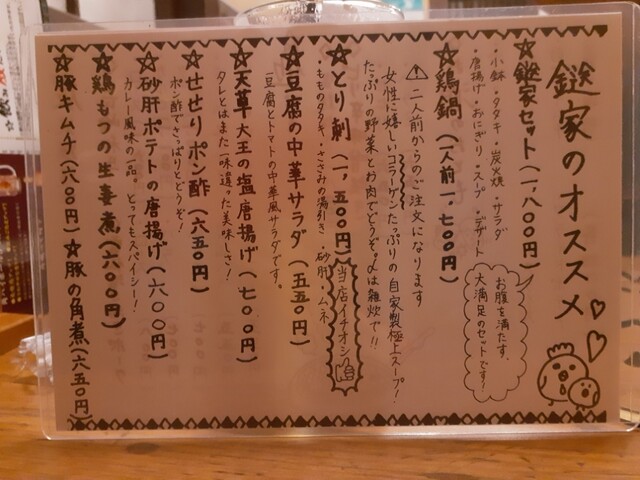 鎹家のオススメ♡♡
☆鎹家セット(一、八〇〇円)
・小鉢・タタキ・炭火焼・サラダ
・唐揚げ・おにぎり・スープ・デザート
お腹を満たす、
大満足のセットです!
☆鶏鍋(一人前一、七〇〇円)
⚠二人前からのご注文になります
女性に嬉しいコラーゲンたっぷりの自家製極上スープ!
たっぷりの野菜とお肉でどうぞ。〆は雑炊で!!
☆とり刺(一、五〇〇円)
当店イチオシ
・もものタタキ・ささみの湯引き・砂肝・ムネ
☆豆腐の中華サラダ(五五〇円)
豆腐とトマトの中華風サラダです。
☆天草大王の塩唐揚げ(七〇〇円)
タレとはまた一味違った美味しさ!
☆せせりポン酢(六五〇円)
ポン酢でさっぱりとどうぞ!
☆砂肝ポテトの唐揚げ(六〇〇円)
カレー風味の一品。とってもスパイシー!
☆鶏もつの生姜煮(六〇〇円)
☆豚キムチ(六〇〇円)☆豚の角煮(六五〇円)